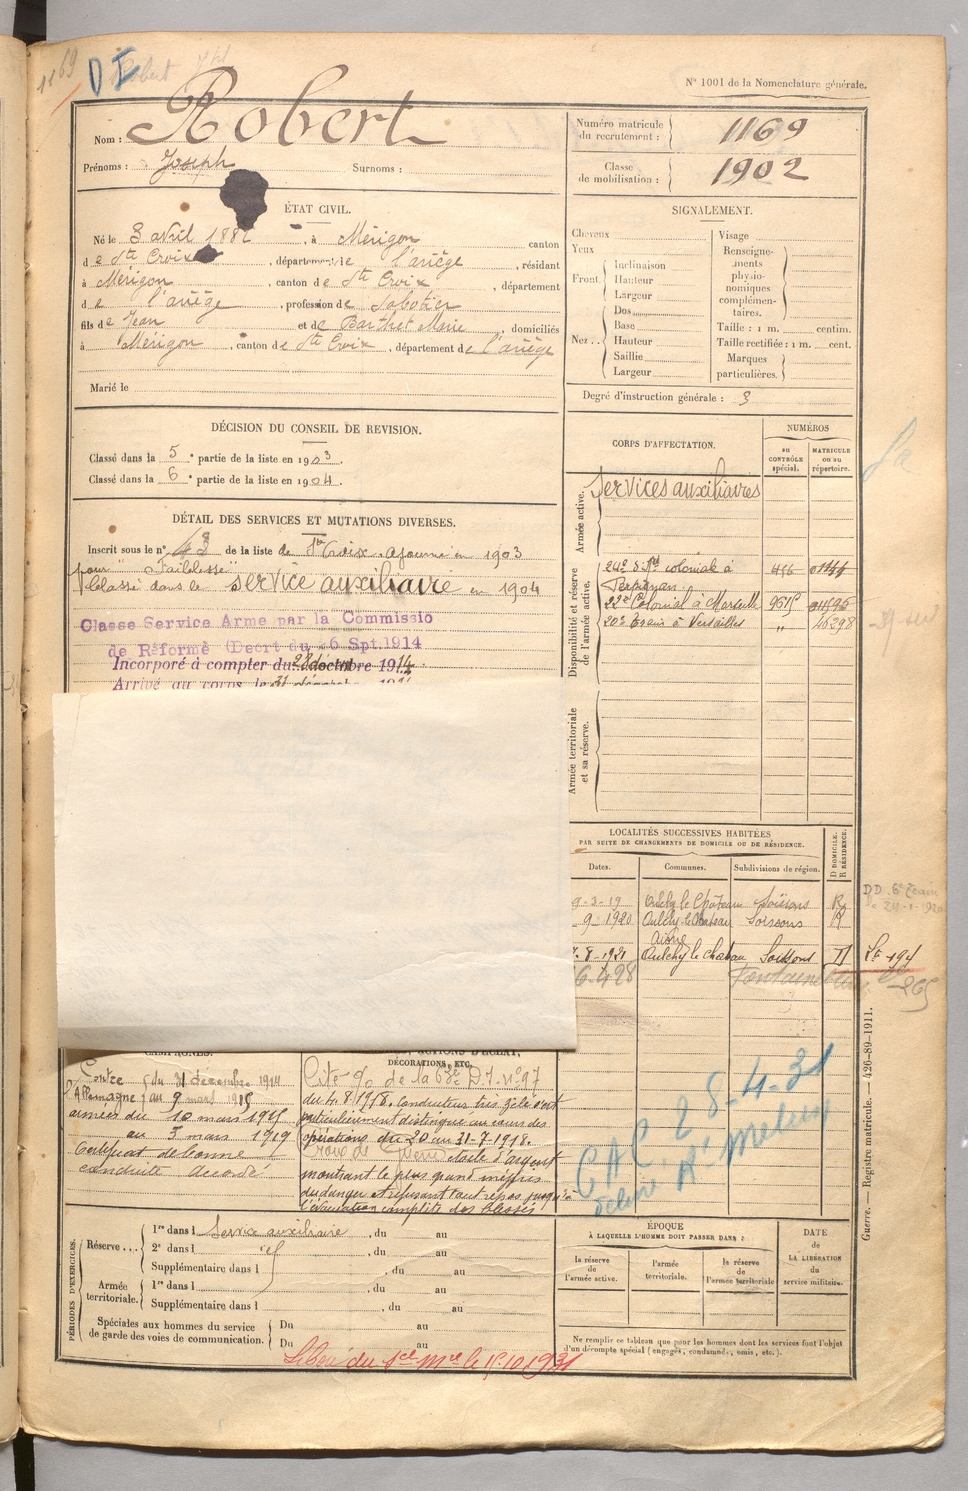 1169
D I
Robert Jph
N° 1001 de la Nomenclature générale.
Nom : Robert
Prénoms : Joseph Surnoms :
Numéro matricule du recrutement : 1169
Classe de mobilisation : 1902
ÉTAT CIVIL.
Né le 3 avril 1882, à Mérigon canton
de Ste Croix, département de l'ariège, résidant
à Mérigon, canton de Ste Croix, département
de l'ariège, profession de Sabotier
fils de Jean et de Barthet Marie, domiciliés
à Mérigon, canton de Ste Croix, département de l'ariège
Marié le
SIGNALEMENT.
Cheveux
Yeux
Front. Inclinaison
Hauteur
Largeur
Nez.. Dos
Base
Hauteur
Saillie
Largeur
Visage
Renseignements physionomiques complémentaires.
Taille : 1 m. centim.
Taille rectifiée : 1 m. cent.
Marques particulières.
Degré d'instruction générale : 3
DÉCISION DU CONSEIL DE REVISION.
Classé dans la 5e partie de la liste en 1903.
Classé dans la 6e partie de la liste en 1904.
DÉTAIL DES SERVICES ET MUTATIONS DIVERSES.
Inscrit sous le n° 48 de la liste de Ste Croix. ajourné en 1903
pour "Faiblesse"
Classé dans le service auxiliaire en 1904
Classe Service Arme par la Commissio
de Réforme (Decrt du 26 Spt.1914
Incorporé à compter du 28 décembre 1914.
Arrivé au corps le 31 décembre 191
CORPS D'AFFECTATION.
NUMÉROS
au CONTRÔLE spécial.
MATRICULE ou au répertoire.
Armée active.
Services auxiliaires
Disponibilité et réserve de l'armée active.
24e d'Inf coloniale à 456 0144
Perpignan.
22e Colonial à Marseille 9615 011595
20e Train à Versailles " 26398
Armée territoriale et sa réserve.
LOCALITÉS SUCCESSIVES HABITÉES
PAR SUITE DE CHANGEMENTS DE DOMICILE OU DE RÉSIDENCE.
Dates. Communes. Subdivisions de région. D DOMICILE. R RÉSIDENCE.
9-3-19 Oulchy le Château Soissons R
9-1920 Oulchy-le-Chateau Soissons R
Aisne
8-1921 Oulchy le chateau Soissons D
6-4-28 Fontainebleau
CAMPAGNES.
Contre du 31 decembre 1914
l'Allemagne au 9 mars 1915
armées du 10 mars 1915
au 5 mars 1919
Certificat de bonne
conduite accordé
ACTIONS D'ÉCLAT,
DÉCORATIONS, ETC.
Cité % de la 63e D.I. n° 97
du 4.8.1918. Conducteur très zélé s'est
particulièrement distingué au cours des
opérations du 20 au 31-7-1918.
Croix de Guerre étoile d'argent
montrant le plus grand mépris
du danger et refusant tout repos jusqu'à
l'évacuation complète des blessés
CAC 28-4-31
Rt Melun
PÉRIODES D'EXERCICES.
Réserve... 1re dans l Service auxiliaire, du au
2e dans l, du au
Supplémentaire dans l, du au
Armée territoriale. 1re dans l, du au
Supplémentaire dans l, du au
Spéciales aux hommes du service de garde des voies de communication. Du au
Du au
Libéré du sce mre le 15.10.1931
ÉPOQUE
À LAQUELLE L'HOMME DOIT PASSER DANS :
la réserve de l'armée active.
l'armée territoriale.
la réserve de l'armée territoriale
DATE de LA LIBÉRATION du service militaire.
Ne remplir ce tableau que pour les hommes dont les services font l'objet
d'un décompte spécial (engagés, condamnés, omis, etc.).
Guerre. — Registre matricule. — 426-89-1911.